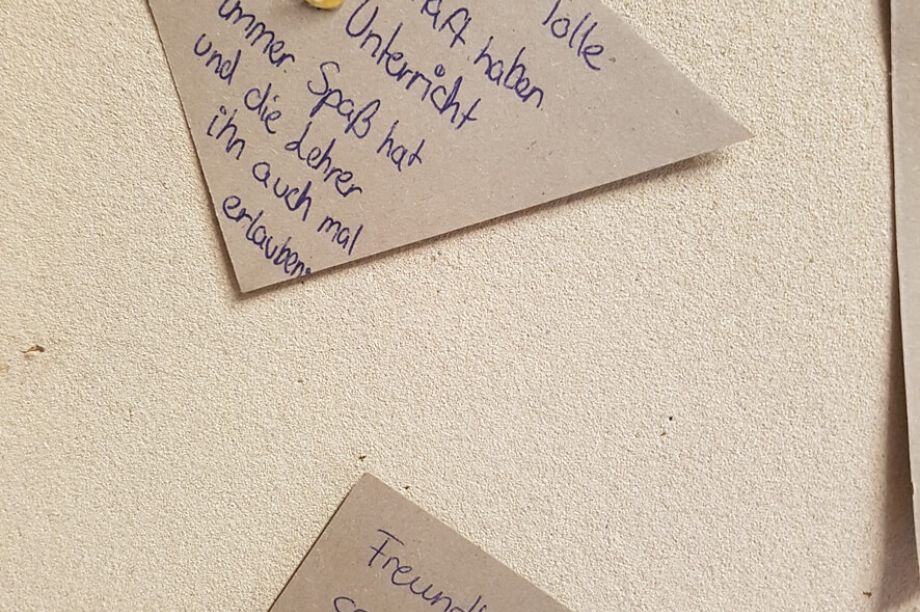 tolle
haben
Unterricht
immer Spaß hat
und die Lehrer
ihn auch mal
erlauben.